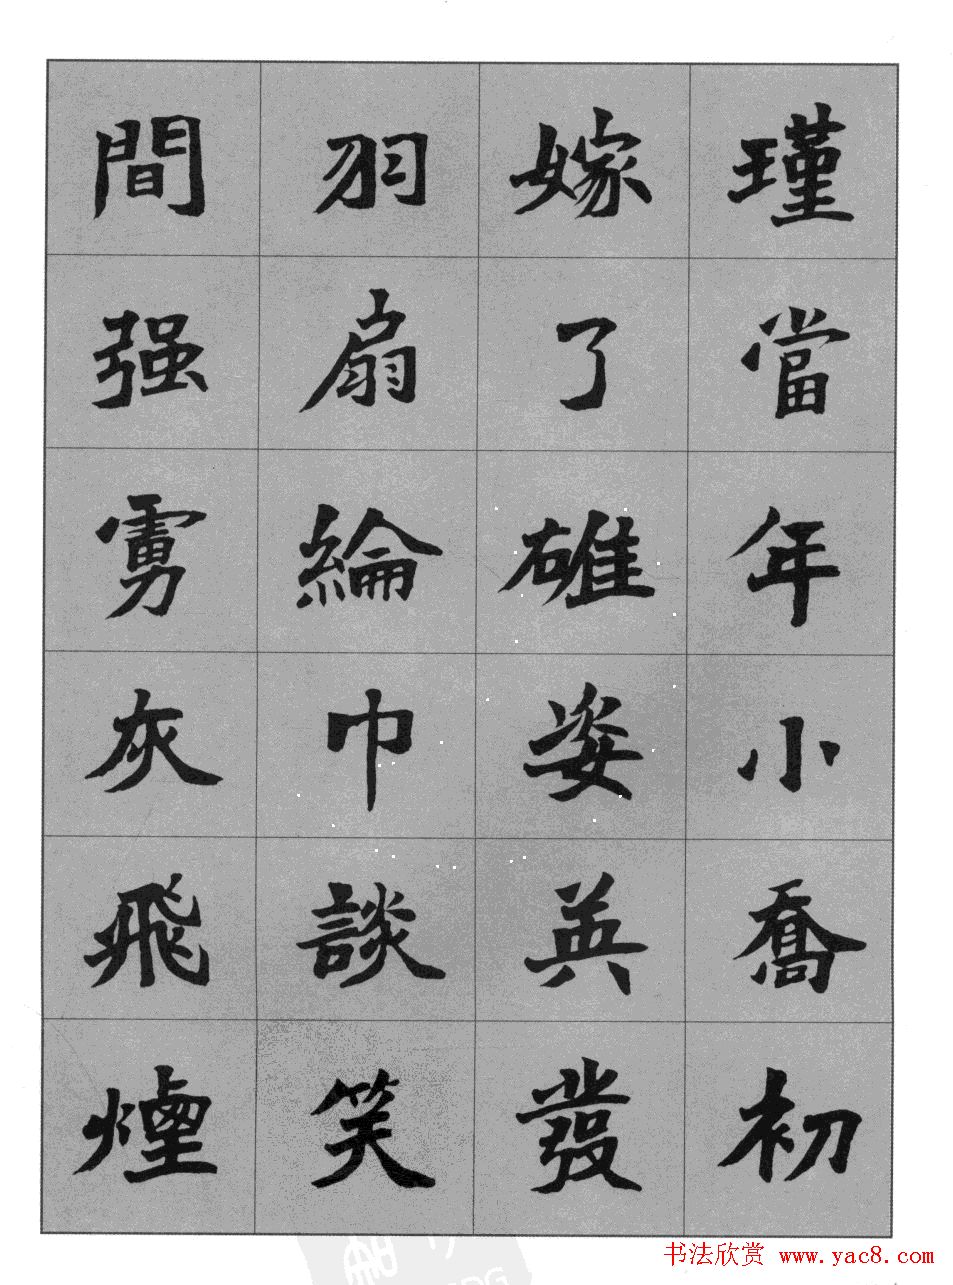 瑾當年小喬初
嫁了碓姿英發
羽扇綸巾談笑
間强虜灰飛煙
书法欣赏 www.yac8.com